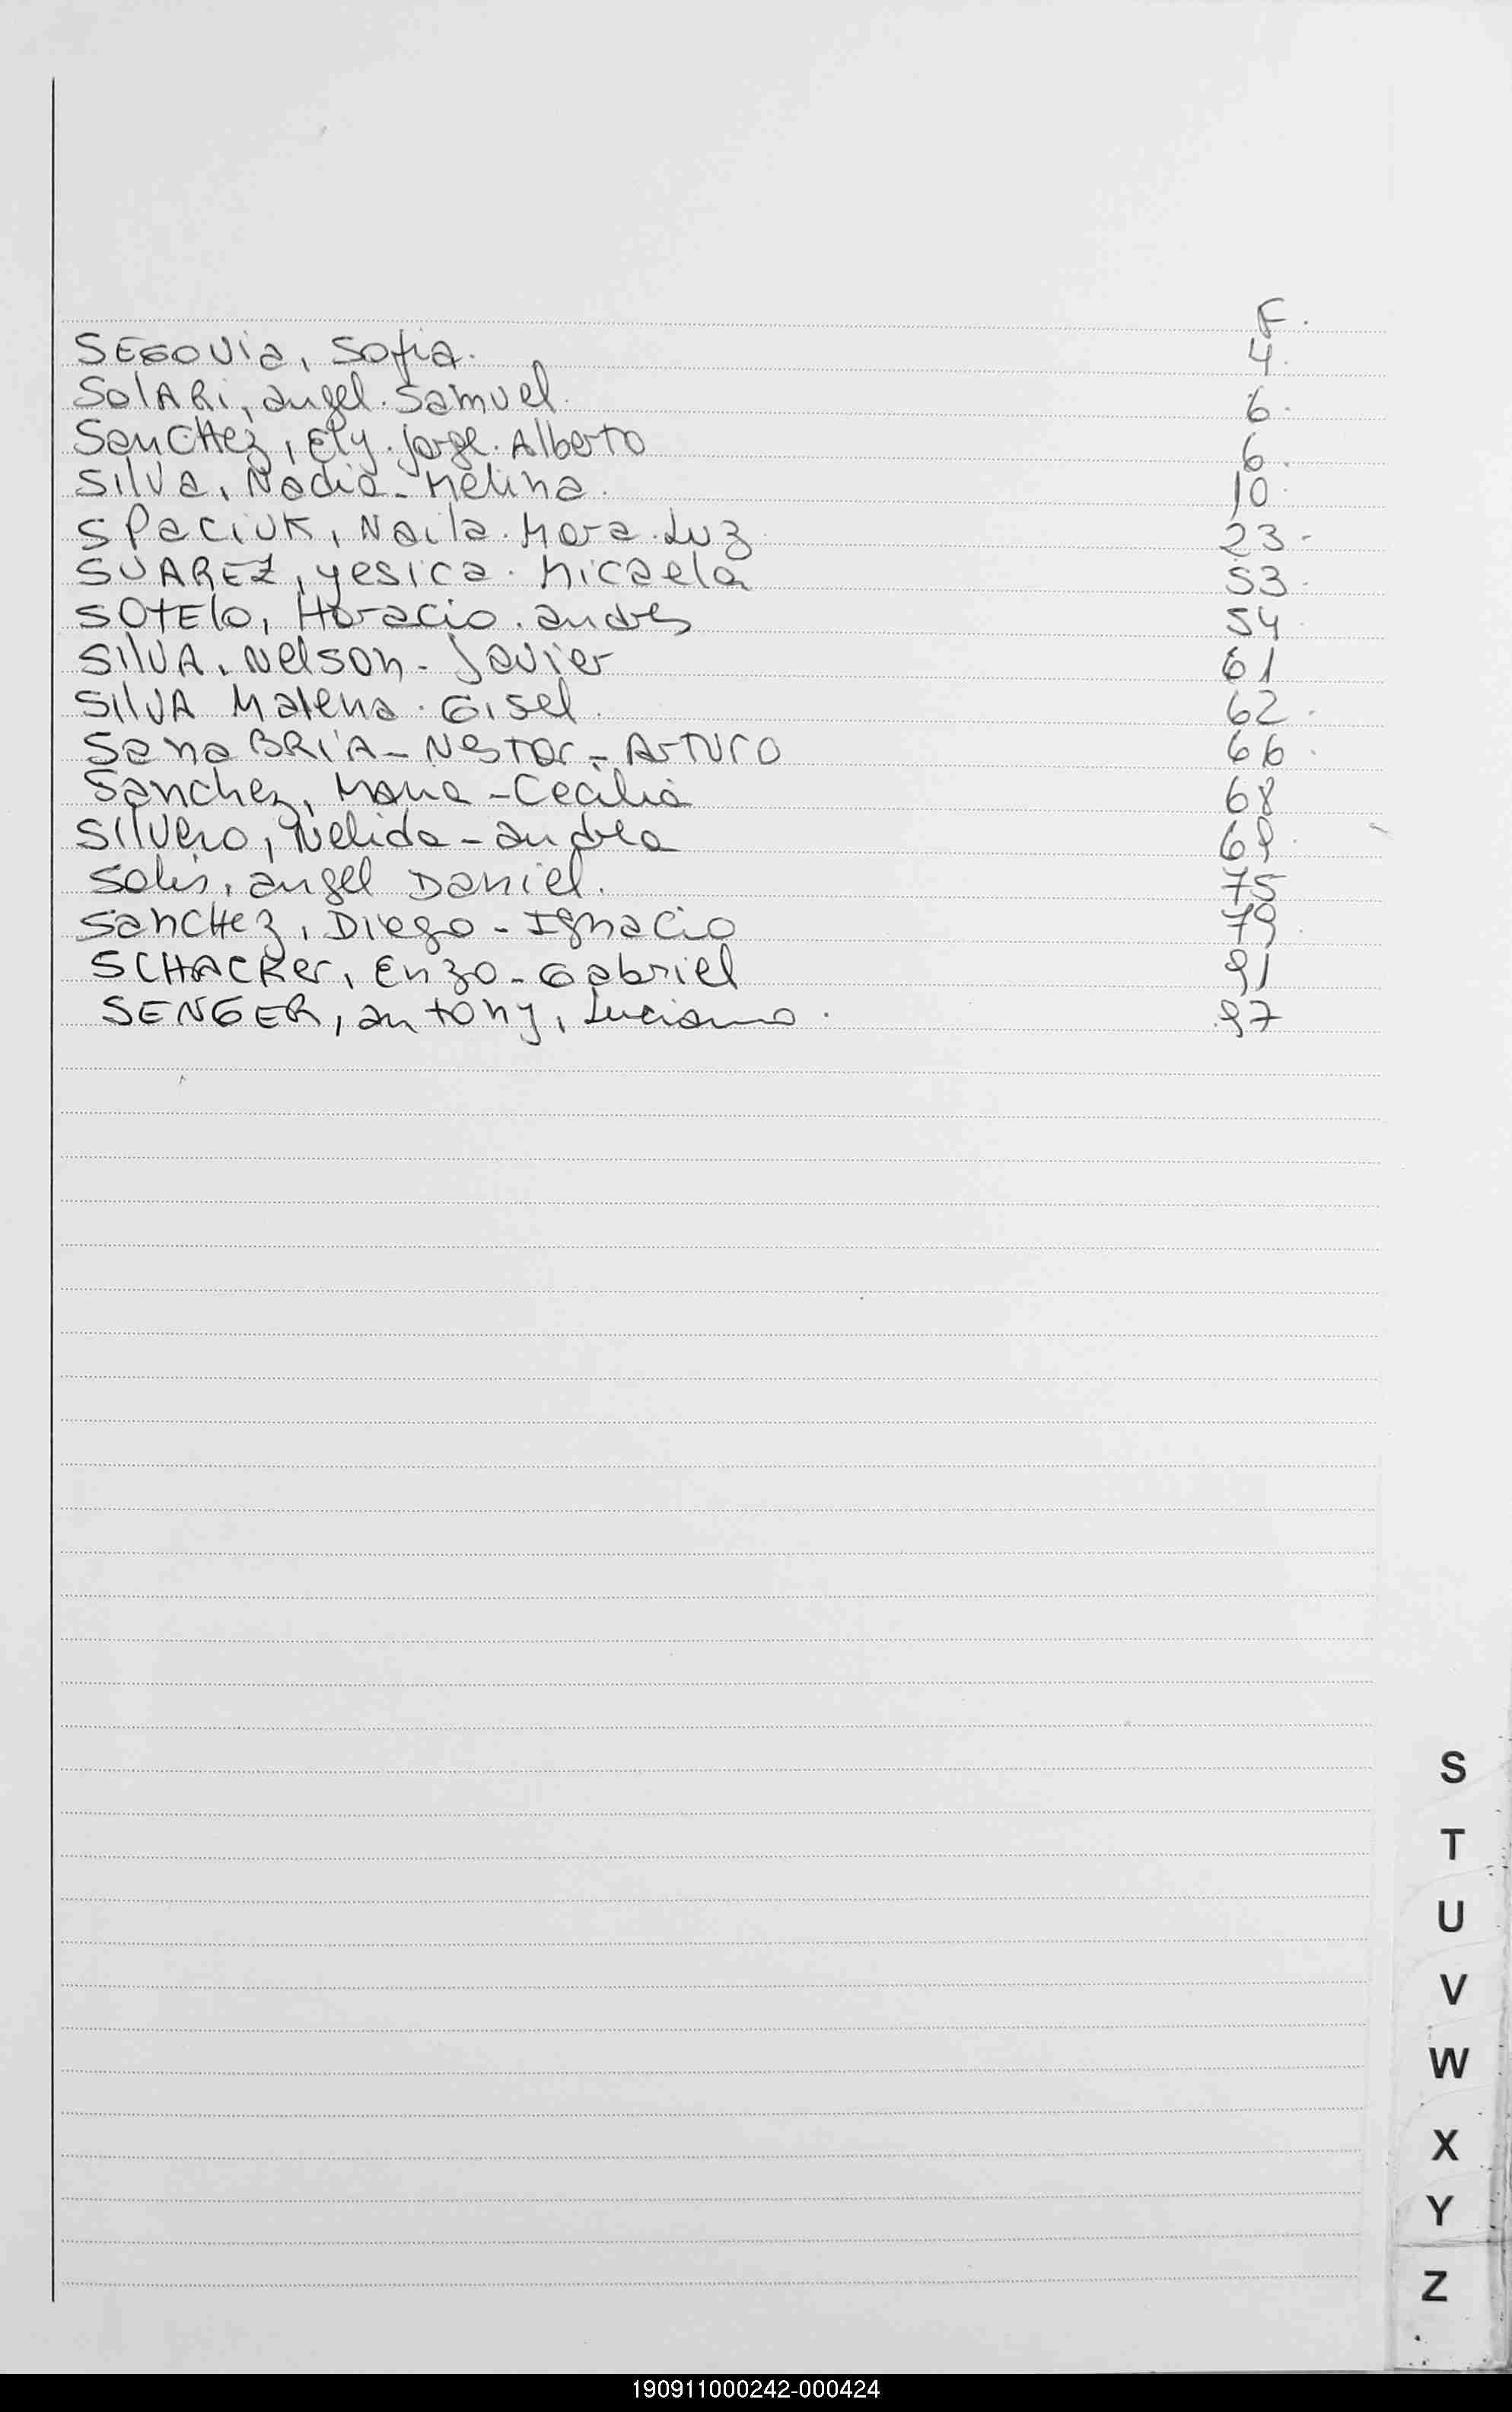 F.
SEGOVia, Sofia. 4.
SolARi, angel. Samuel. 6.
SanCHez, Ely. Jorge. Alberto 6.
Silva, Nadia - Melina. 10.
SPaCiUK, Naila. Mora. Luz 23-
SUAREZ, yesica. Micaela 53.
SOtElo, Horacio. andres 54.
SilVA, Nelson - Javier 61
SilVA Malena. Gisel. 62.
SanaBRIA - NesTor - ArTUro 66.
Sanchez, Maria - Cecilia 68
Silvero, Nelida - andrea 69.
Solis, angel Daniel. 75
SanCHez, Diego - Ignacio 79.
SCHACKer, Enzo - Gabriel 91
SENGER, antony, Luciano. 97
S
T
U
V
W
X
Y
Z
190911000242-000424